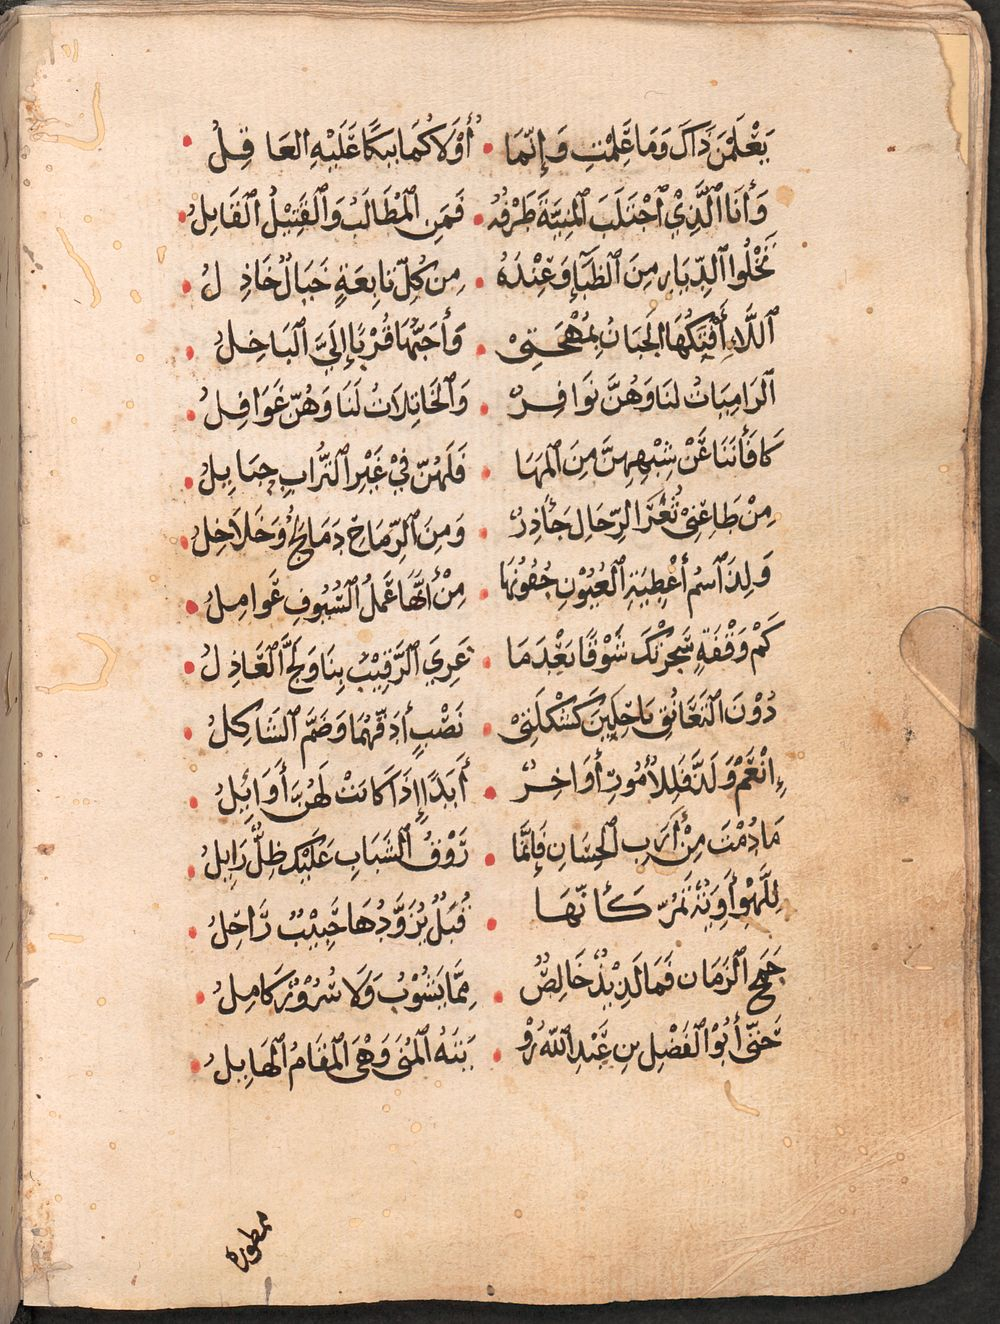 يَعْلَمْنَ ذَاكَ وَمَا عَلِمْتِ وَإِنَّمَا • أَوْلَاكُمَا بِبُكًا عَلَيْهِ العَاقِلُ •
وَأَنَا الَّذِيْ اَجْتَلَبَ المَنِيَّةَ طَرْفُهُ • فَمَنِ المُطَالَبُ وَالقَتِيْلُ القَاتِلُ •
تَخْلُوا الدِّيَارُ مِنَ الظِّبَآءِ وَعِنْدَهُ • مِن كُلِّ تَابِعَةٍ خَيَالٌ خَاذِلُ •
اَللَّاءِ أَفْتَكُهَا الجَبَانُ بِمُهْجَتِيْ • وَأَحَبُّهَا قُرْبًا إِلَيَّ البَاخِلُ •
الرَامِيَاتُ لنَا وَهُنَّ نَوَافِرٌ • وَالخَاتِلَاتُ لَنَا وَهُنَّ غَوَافِلُ •
كَافَأْنَنَا عَنْ شِبْهِهِنَّ مِنَ المَهَا • فَلَهُنَّ فِيْ غَيْرِ التُّرَابِ حَبَايِلُ •
مِنْ طَاعِنِيْ ثُغَرِ الرِّجَالِ جَآذِرٌ • وَمِنَ الرِّمَاحِ دَمَالِجٌ وَخَلَاخِلُ •
وَلِذَا اسْمُ أَغْطِيَةِ العُيُوْنِ جُفُوْنُهَا • مِنْ أَنَّهَا عَمَلَ السُّيُوفِ عَوَامِلُ •
كَمْ وَقْفَةٍ سَجَرَتْكَ شَوْقًا بَعْدَمَا • غَرِيَ الرَّقِيْبُ بِنَا وَلَجَّ العَاذِلُ •
دُوْنَ التَعَانُقِ نَاحِلِينَ كَشَكْلَتِيْ • نَصْبٍ أَدَقَّهُمَا وَضَمَّ الشَاكِلُ •
إِنْعَمْ وَلَذَّ فَلِلأُمُورِ أَوَاخِرٌ • أَبَدًا إِذَا كَانَتْ لَهُنَّ أَوَائِلُ •
مَا دُمْتَ مِنْ أَرَبِ الحِسَانِ فَإِنَّمَا • رَوْقُ الشَبَابِ عَلَيْكَ ظِلٌّ زَايِلُ •
لِلَّهْوِ أَوِنَةٌ تَمُرُّ كَأَنَّهَا • قُبَلٌ يُزَوَّدُهَا حَبِيْبٌ رَاحِلُ •
جَمَحَ الزَمَان فَمَا لَذِيْذٌ خَالِصٌ • مِمَّا يَشُوْبُ وَلَا سُرُوْرٌ كَامِلُ •
حَتَّى أَبُوْ الفَضْلِ بنِ عَبْدِ اللهِ رُؤْ • يَتُهُ المُنَى وَهْيَ المَقَامُ الهَايِلُ •
ممطورة